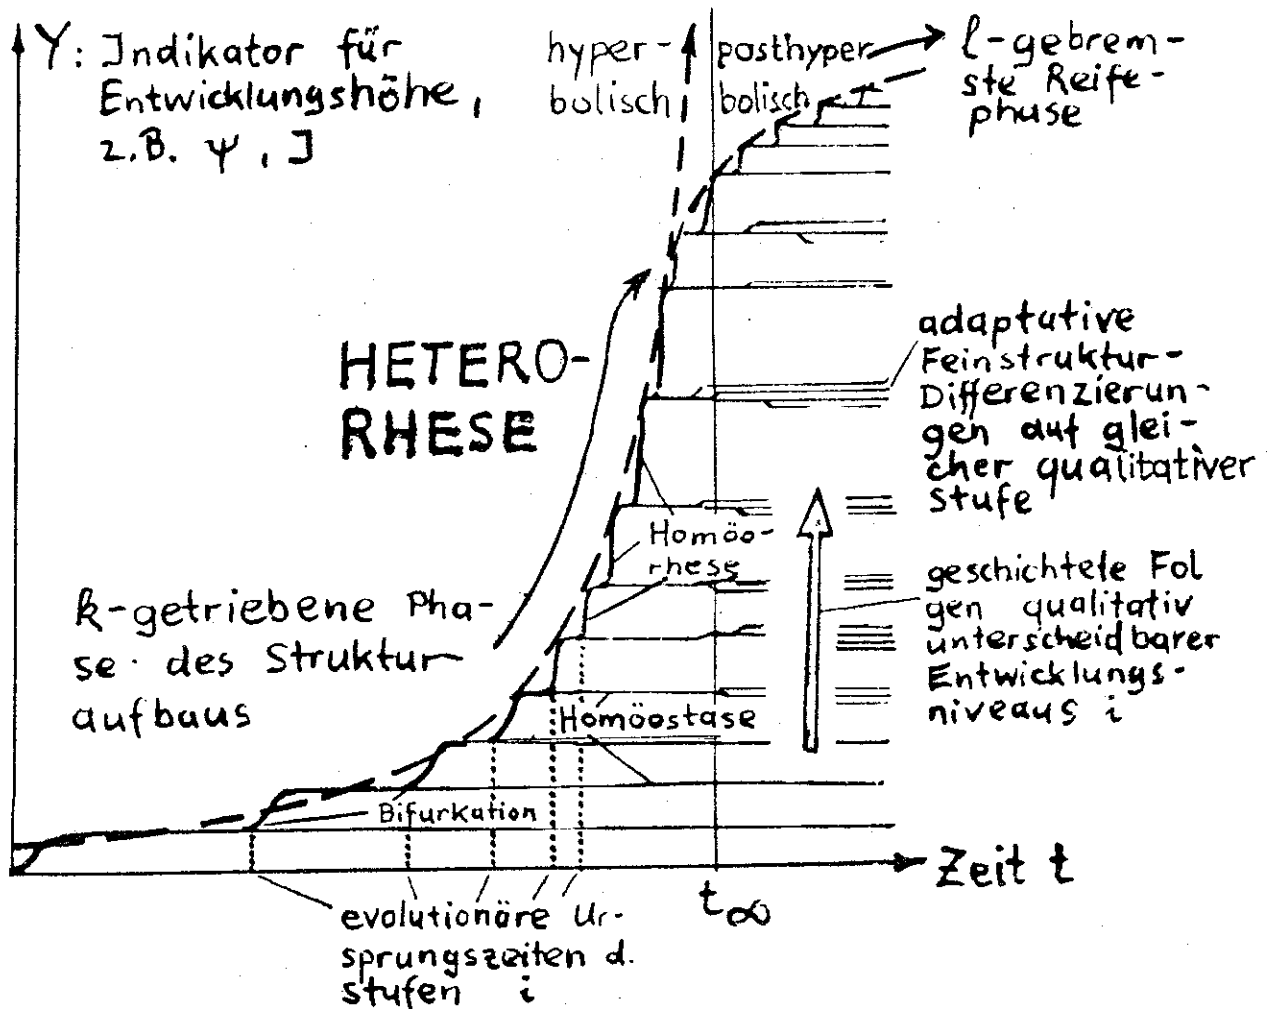 Y: Indikator für
Entwicklungshöhe,
z.B. Ψ, J
hyper-
bolisch
posthyper
bolisch
l-gebrem-
ste Reife-
phase
HETERO-
RHESE
adaptutive
Feinstruktur-
Differenzierun-
gen auf glei-
cher qualitativer
Stufe
Homöo-
rhese
geschichtete Fol
gen qualitativ
unterscheidbarer
Entwicklungs-
niveaus i
k-getriebene Pha-
se des Struktur-
aufbaus
Homöostase
Bifurkation
Zeit t
t∞
evolutionäre Ur-
sprungszeiten d.
Stufen i